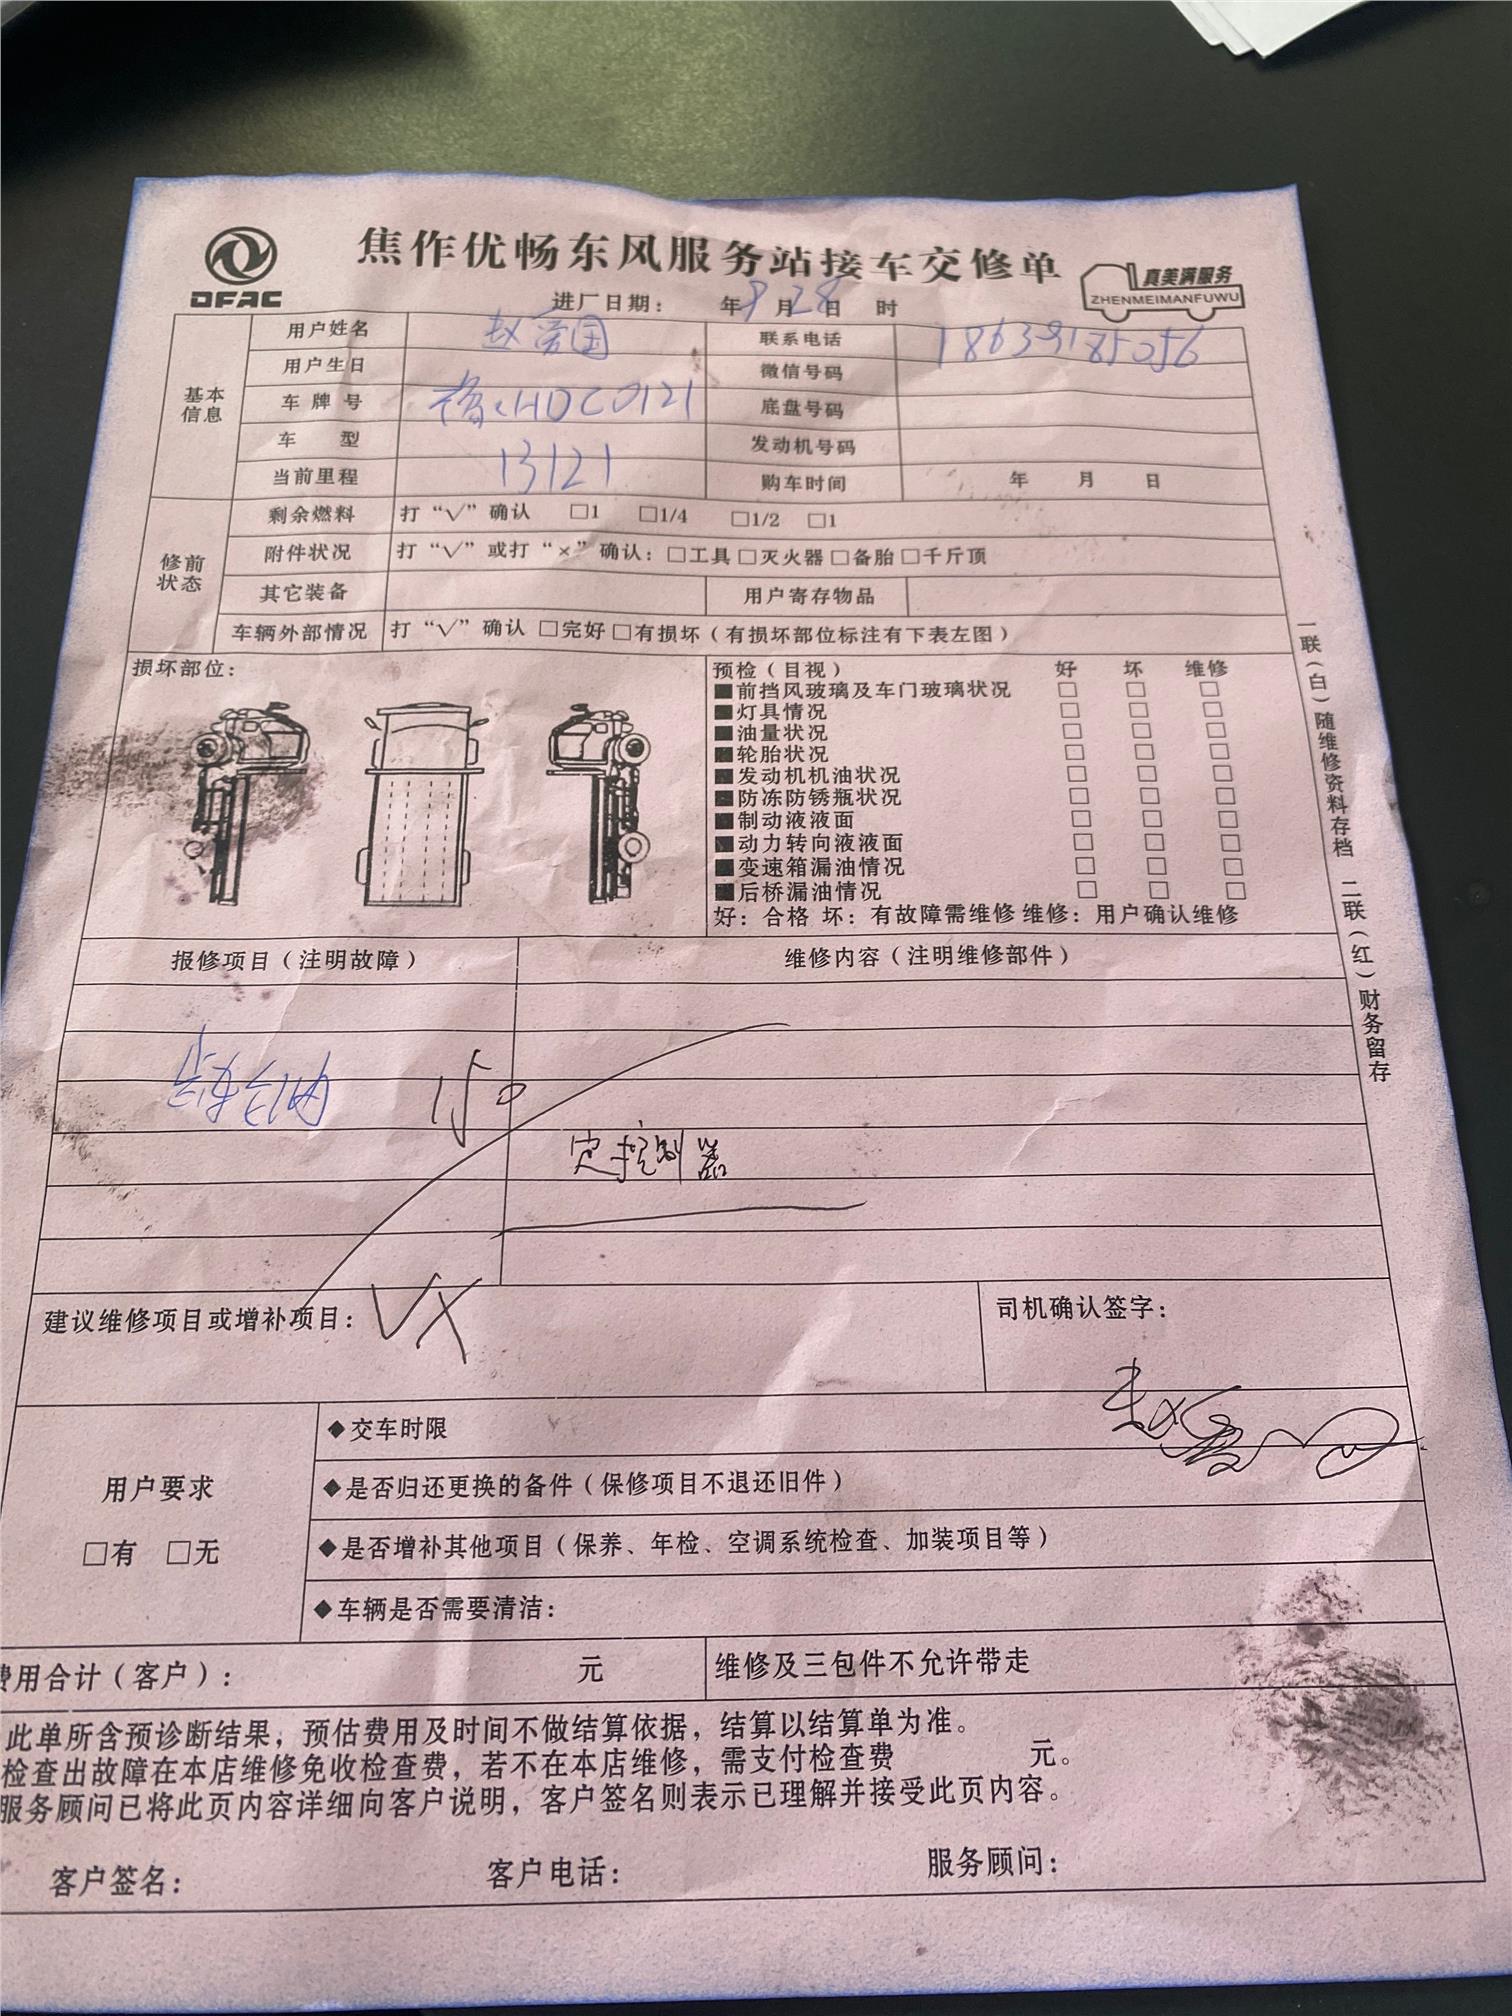 焦作优畅东风服务站接车交修单
DFAC
真美满服务
ZHENMEIMANFUWU
进厂日期： 年 9 月 28 日 时
基本信息
用户姓名 赵 国 联系电话 18639185056
用户生日 微信号码
车牌号 豫HDC0121 底盘号码
车 型 发动机号码
当前里程 13121 购车时间 年 月 日
修前状态
剩余燃料 打“√”确认 □1 □1/4 □1/2 □1
附件状况 打“√”或打“×”确认：□工具□灭火器□备胎□千斤顶
其它装备 用户寄存物品
车辆外部情况 打“√”确认 □完好□有损坏（有损坏部位标注有下表左图）
损坏部位：
预检（目视） 好 坏 维修
■前挡风玻璃及车门玻璃状况 □ □ □
■灯具情况 □ □ □
■油量状况 □ □ □
■轮胎状况 □ □ □
■发动机机油状况 □ □ □
■防冻防锈瓶状况 □ □ □
■制动液液面 □ □ □
■动力转向液液面 □ □ □
■变速箱漏油情况 □ □ □
■后桥漏油情况 □ □ □
好：合格 坏：有故障需维修 维修：用户确认维修
一联（白）随维修资料存档 二联（红）财务留存
报修项目（注明故障） 维修内容（注明维修部件）
150
定控制器
建议维修项目或增补项目： 司机确认签字：
用户要求
□有 □无
◆交车时限
◆是否归还更换的备件（保修项目不退还旧件）
◆是否增补其他项目（保养、年检、空调系统检查、加装项目等）
◆车辆是否需要清洁：
费用合计（客户）： 元 维修及三包件不允许带走
此单所含预诊断结果，预估费用及时间不做结算依据，结算以结算单为准。
检查出故障在本店维修免收检查费，若不在本店维修，需支付检查费 元。
服务顾问已将此页内容详细向客户说明，客户签名则表示已理解并接受此页内容。
客户签名： 客户电话： 服务顾问：